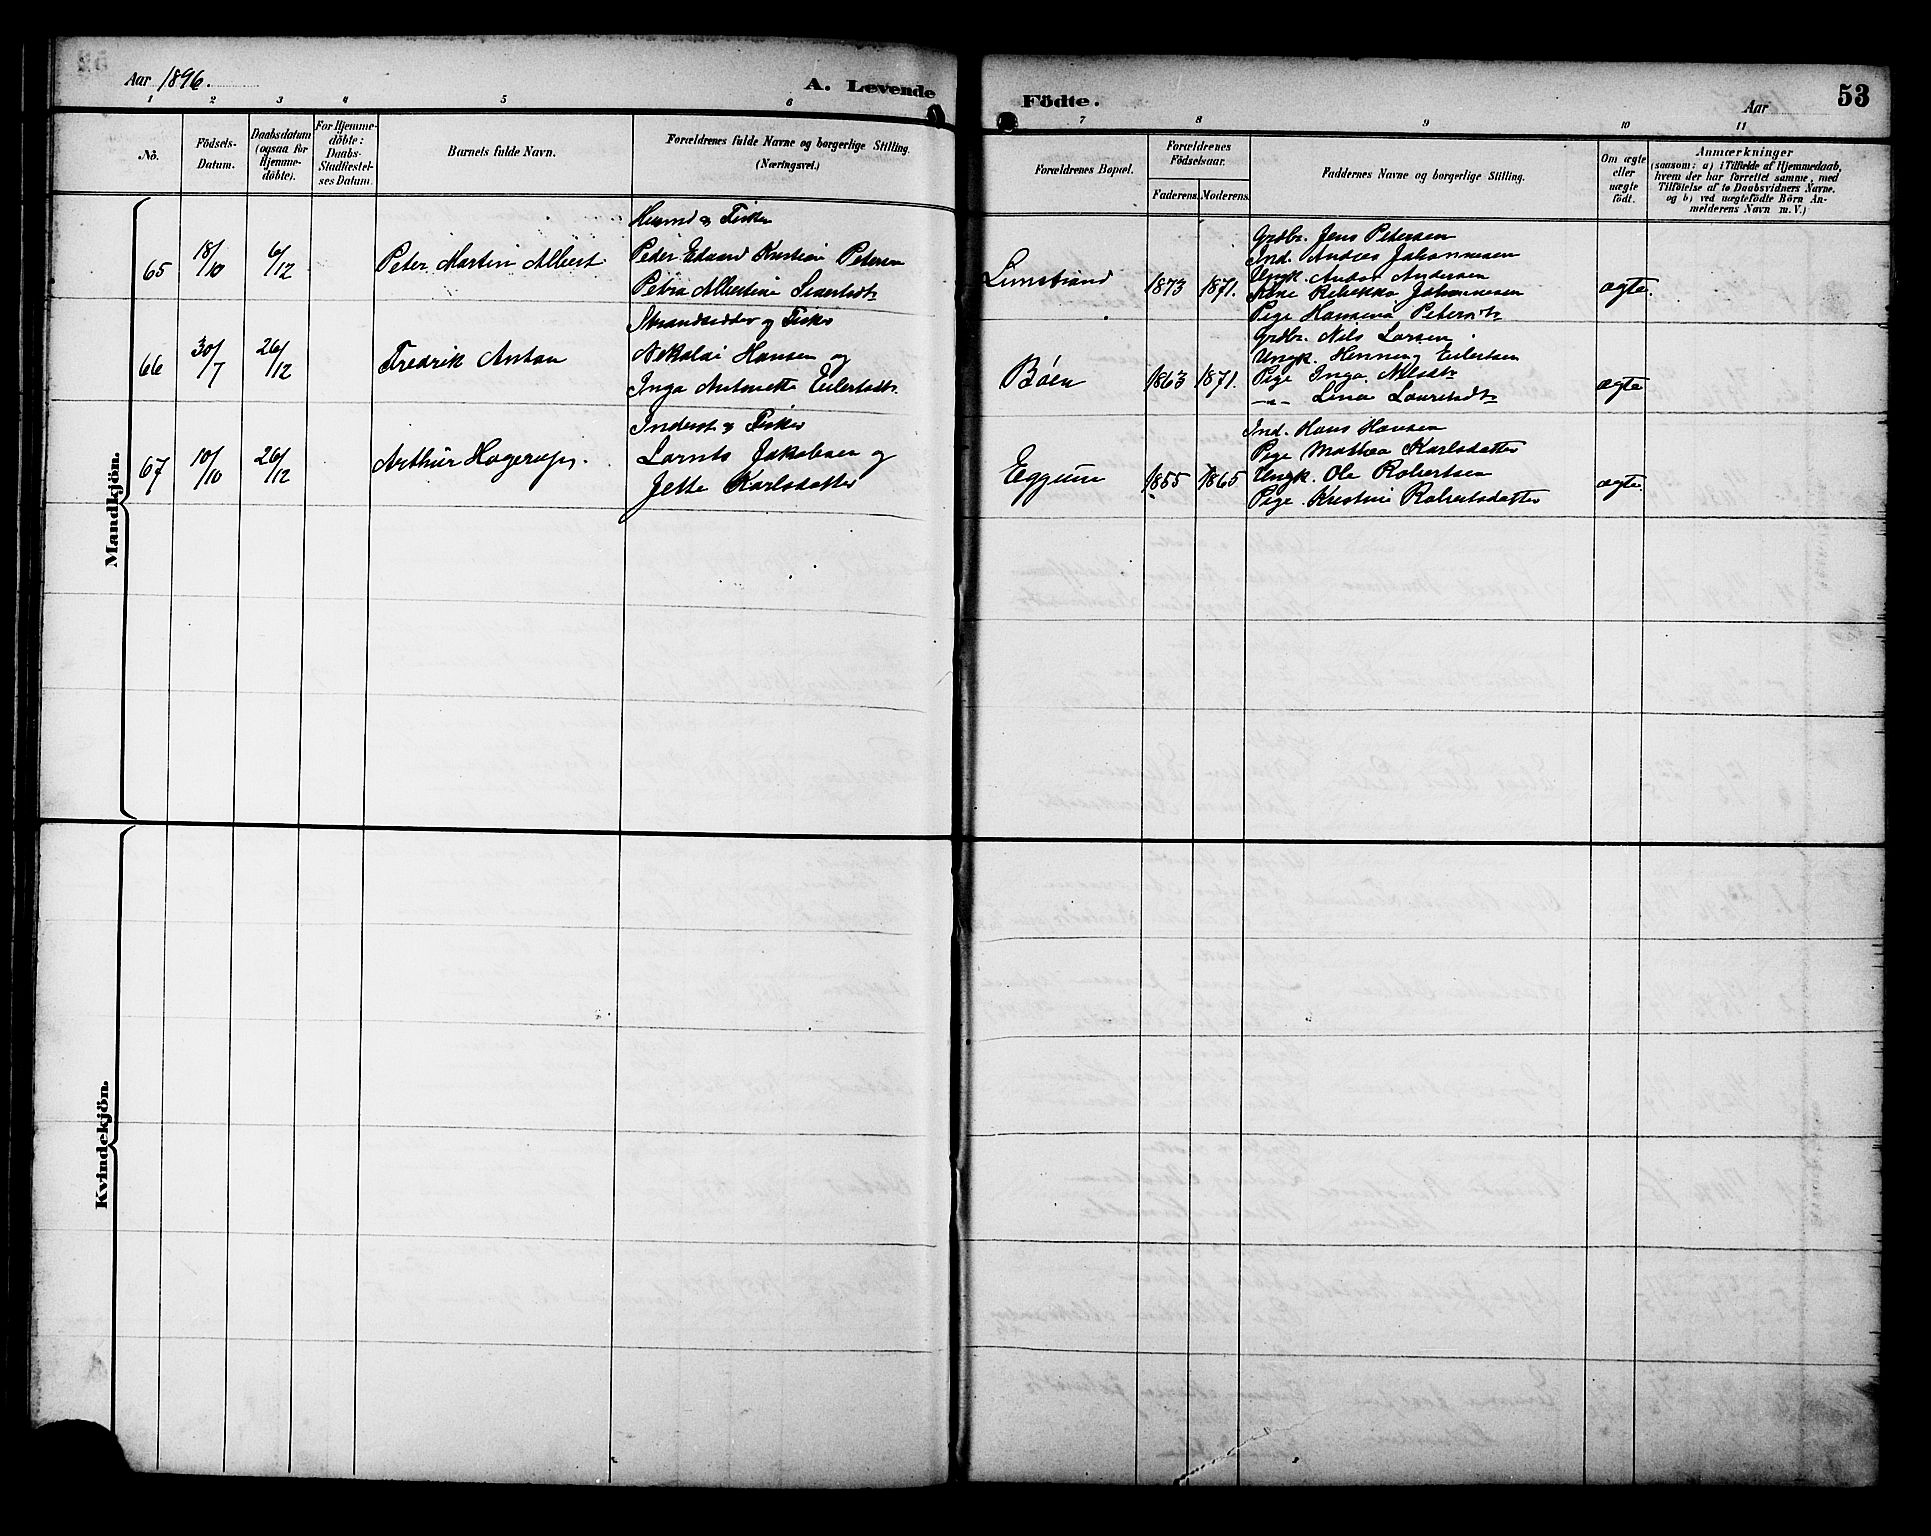 Aar 1896.
A. Levende Födte.
Aar
53
1 2 3 4 5 6 7 8 9 10 11
No.
Födsels-
Datum.
Daabsdatum
(ogsaa for
Hjemme-
döbte).
For Hjemme-
döbte:
Daabs-
Stadfæstel-
ses Datum.
Barnets fulde Navn.
Forældrenes fulde Navne og borgerlige Stilling.
(Næringsvei.)
Forældrenes Bopæl.
Forældrenes
Födselsaar.
Faderens. Moderens.
Faddernes Navne og borgerlige Stilling.
Om ægte
eller
uægte
födt.
Anmærkninger
(saasom: a) i Tilfælde af Hjemmedaab,
hvem der har forrettet samme, med
Tilföielse af to Daabsvidners Navne.
og b) ved uægtefödte Börn An-
melderens Navn m. V.)
Mandkjön.
65
18/10
6/12
Peter Martin Albert
Huusmd og Fisker
Peder Edvard Kristian Petersen
Petra Albertine Sivertsdtr
1873
1871.
Grdbr. Jens Petersen
Ind. Andreas Johannessen
Ungk. Anton Andersen
Kone Rebekka Johannesen
Pige Hansena Petersdtr
ægte.
66
30/7
26/12
Fredrik Anton
Strandsidder og Fisker
Nikolai Hansen og
Inga Antonette Eilertsdtr.
Böen
1863
1871.
Grdbr. Nils Larsen
Ungk. Henning Eilertsen
Pige Inga Nilsdtr
-"- Lina Lauritsdtr
ægte
67
10/10
26/12
Arthur Hagerup.
Inderst og Fisker
Lornts Jakobsen og
Jette Karlsdatter
Eggum
1855
1865
Ind. Hans Hansen
Pige Mathea Karlsdatter
Ungk. Ole Robertsen
Pige Kristine Robertsdatter
ægte.
Kvindekjön.